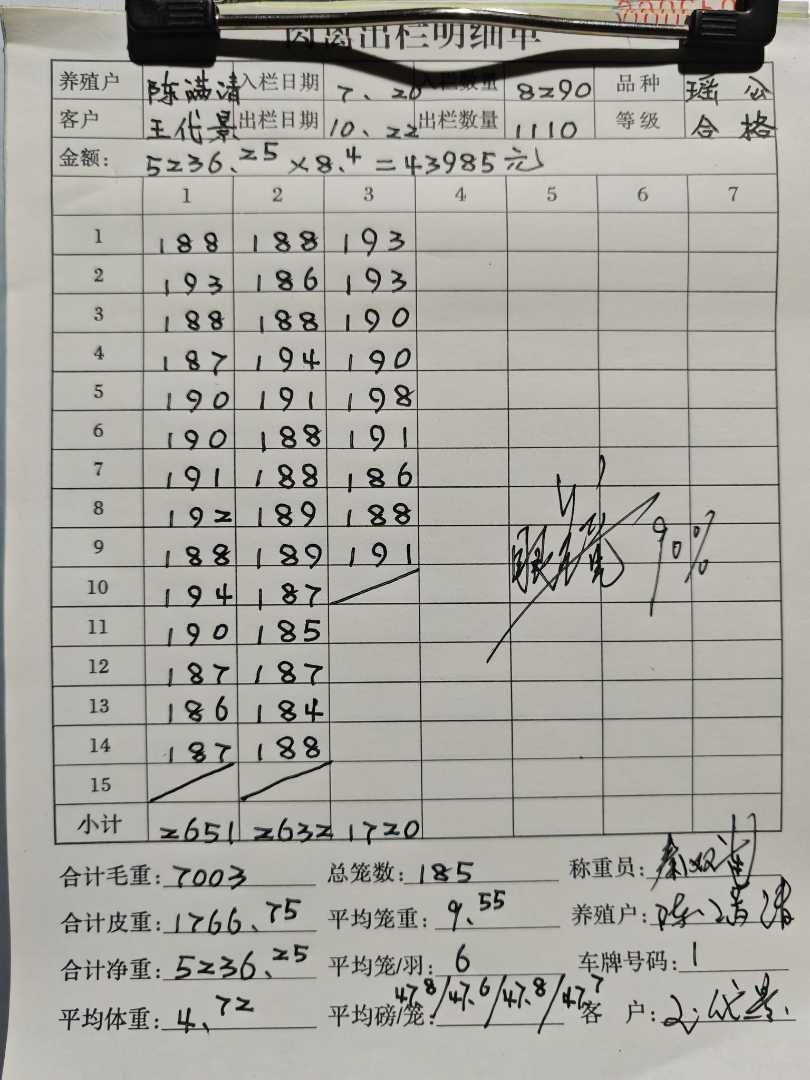 禽离出栏明细单
养殖户 陈满清 入栏日期 7、20 入栏数量 8290 品种 瑶公
客户 王代景 出栏日期 10、22 出栏数量 1110 等级 合格
金额: 5236.25×8.4=43985元
1 2 3 4 5 6 7
1 188 188 193
2 193 186 193
3 188 188 190
4 187 194 190
5 190 191 198
6 190 188 191
7 191 188 186
8 192 189 188
9 188 189 191
90%
10 194 187
11 190 185
12 187 187
13 186 184
14 187 188
15
小计 2651 2632 1720
合计毛重: 7003 总笼数: 185 称重员:
合计皮重: 1766.75 平均笼重: 9.55 养殖户: 陈满清
合计净重: 5236.25 平均笼/羽: 6 车牌号码: 1
平均体重: 4.72 平均磅/笼: 47.8/47.6/47.8/47.7 客户: 王代景